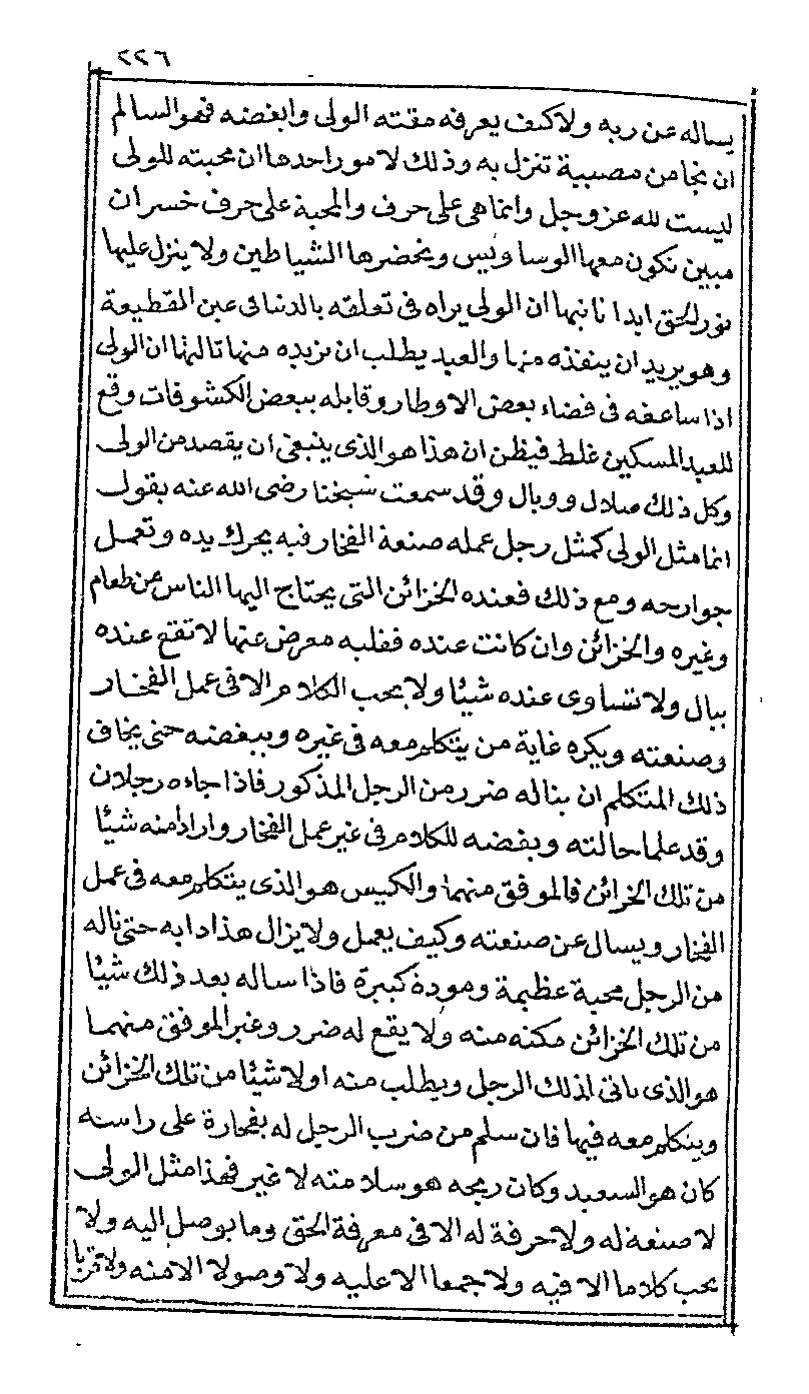 ٢٢٦
يساله عن ربه ولا كيف يعرفه مقته الولى وابغضه فهو السالم
ان نجا من مصيبة تنزل به وذلك لامور احدها ان محبته للولى
ليست لله عز وجل وانما هى على حرف والمحبة على حرف خسران
مبين تكون معها الوساويس وتحضرها الشياطين ولا ينزل عليها
نور الحق ابدا ثانيها ان الولى يراه فى تعلقه بالدنيا فى عين القطيعة
وهو يريد ان ينقذه منها والعبد يطلب ان يزيده منها ثالثها ان الولى
اذا ساعفه فى قضاء بعض الاوطار وقابله ببعض الكشوفات وقع
للعبد المسكين غلط فيظن ان هذا هو الذى ينبغى ان يقصد من الولى
وكل ذلك ضلال ووبال وقد سمعت شيخنا رضى الله عنه يقول
انما مثل الولى كمثل رجل عمله صنعة الفخار فيه يحرك يده وتعمل
جوارحه ومع ذلك فعنده الخزائن التى يحتاج اليها الناس من طعام
وغيره والخزائن وان كانت عنده فقلبه معرض عنها لا تقع عنده
ببال ولا تساوى عنده شيئا ولا يحب الكلام الا فى عمل الفخار
وصنعته ويكره غاية من يتكلم معه فى غيره ويبغضه حتى يخاف
ذلك المتكلم ان يناله ضرر من الرجل المذكور فاذا جاءه رجلان
وقد علما حالته وبغضه للكلام فى غير عمل الفخار وارادا منه شيئا
من تلك الخزائن فالموفق منهما والكيس هو الذى يتكلم معه فى عمل
الفخار ويسال عن صنعته وكيف يعمل ولا يزال هذا دابه حتى تاله
من الرجل محبة عظيمة ومودة كبيرة فاذا ساله بعد ذلك شيئا
من تلك الخزائن مكنه منه ولا يقع له ضرر وغير الموفق منهما
هو الذى ياتى لذلك الرجل ويطلب منه اولا شيئا من تلك الخزائن
ويتكلم معه فيها فان سلم من ضرب الرجل له بفخارة على راسه
كان هو السعيد وكان ربحه هو سلامته لا غير فهذا مثل الولى
لا صنعة له ولا حرفة له الا فى معرفة الحق وما يوصل اليه ولا
يحب كلاما الا فيه ولا جمعا الا عليه ولا وصولا الا منه ولا قربا